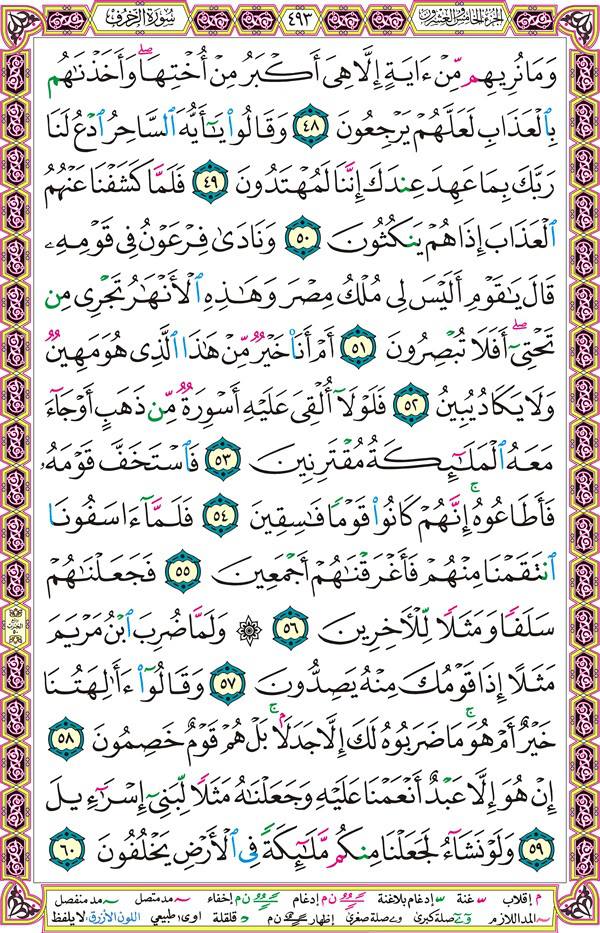 الجزء الخامس والعشرون ٤٩٣ سورة الزخرف
وَمَا نُرِيهِم مِّنْ ءَايَةٍ إِلَّا هِىَ أَكْبَرُ مِنْ أُخْتِهَا ۖ وَأَخَذْنَاهُم
بِالْعَذَابِ لَعَلَّهُمْ يَرْجِعُونَ ٤٨ وَقَالُوا يَا أَيُّهَ السَّاحِرُ ادْعُ لَنَا
رَبَّكَ بِمَا عَهِدَ عِندَكَ إِنَّنَا لَمُهْتَدُونَ ٤٩ فَلَمَّا كَشَفْنَا عَنْهُمُ
الْعَذَابَ إِذَا هُمْ يَنكُثُونَ ٥٠ وَنَادَىٰ فِرْعَوْنُ فِى قَوْمِهِۦ
قَالَ يَاقَوْمِ أَلَيْسَ لِى مُلْكُ مِصْرَ وَهَٰذِهِ الْأَنْهَارُ تَجْرِى مِن
تَحْتِىٓ ۖ أَفَلَا تُبْصِرُونَ ٥١ أَمْ أَنَا خَيْرٌ مِّنْ هَٰذَا الَّذِى هُوَ مَهِينٌ
وَلَا يَكَادُ يُبِينُ ٥٢ فَلَوْلَآ أُلْقِىَ عَلَيْهِ أَسْوِرَةٌ مِّن ذَهَبٍ أَوْ جَآءَ
مَعَهُ الْمَلَٰٓئِكَةُ مُقْتَرِنِينَ ٥٣ فَاسْتَخَفَّ قَوْمَهُۥ
فَأَطَاعُوهُ ۚ إِنَّهُمْ كَانُوا قَوْمًا فَاسِقِينَ ٥٤ فَلَمَّآ ءَاسَفُونَا
انتَقَمْنَا مِنْهُمْ فَأَغْرَقْنَاهُمْ أَجْمَعِينَ ٥٥ فَجَعَلْنَاهُمْ
سَلَفًا وَمَثَلًا لِّلْآخِرِينَ ٥٦ ۞ وَلَمَّا ضُرِبَ ابْنُ مَرْيَمَ
مَثَلًا إِذَا قَوْمُكَ مِنْهُ يَصِدُّونَ ٥٧ وَقَالُوٓا ءَأَٰلِهَتُنَا
خَيْرٌ أَمْ هُوَ ۚ مَا ضَرَبُوهُ لَكَ إِلَّا جَدَلًا ۚ بَلْ هُمْ قَوْمٌ خَصِمُونَ ٥٨
إِنْ هُوَ إِلَّا عَبْدٌ أَنْعَمْنَا عَلَيْهِ وَجَعَلْنَاهُ مَثَلًا لِّبَنِىٓ إِسْرَآءِيلَ
٥٩ وَلَوْ نَشَآءُ لَجَعَلْنَا مِنكُم مَّلَٰٓئِكَةً فِى الْأَرْضِ يَخْلُفُونَ ٦٠
م إقلاب غنة إدغام بلاغنة ن م إدغام ن م إخفاء مد متصل مد منفصل
المد اللازم صلة كبرى صلة صغرى إظهار ن م قلقلة اوى طبيعي اللون الأزرق: لا يلفظ